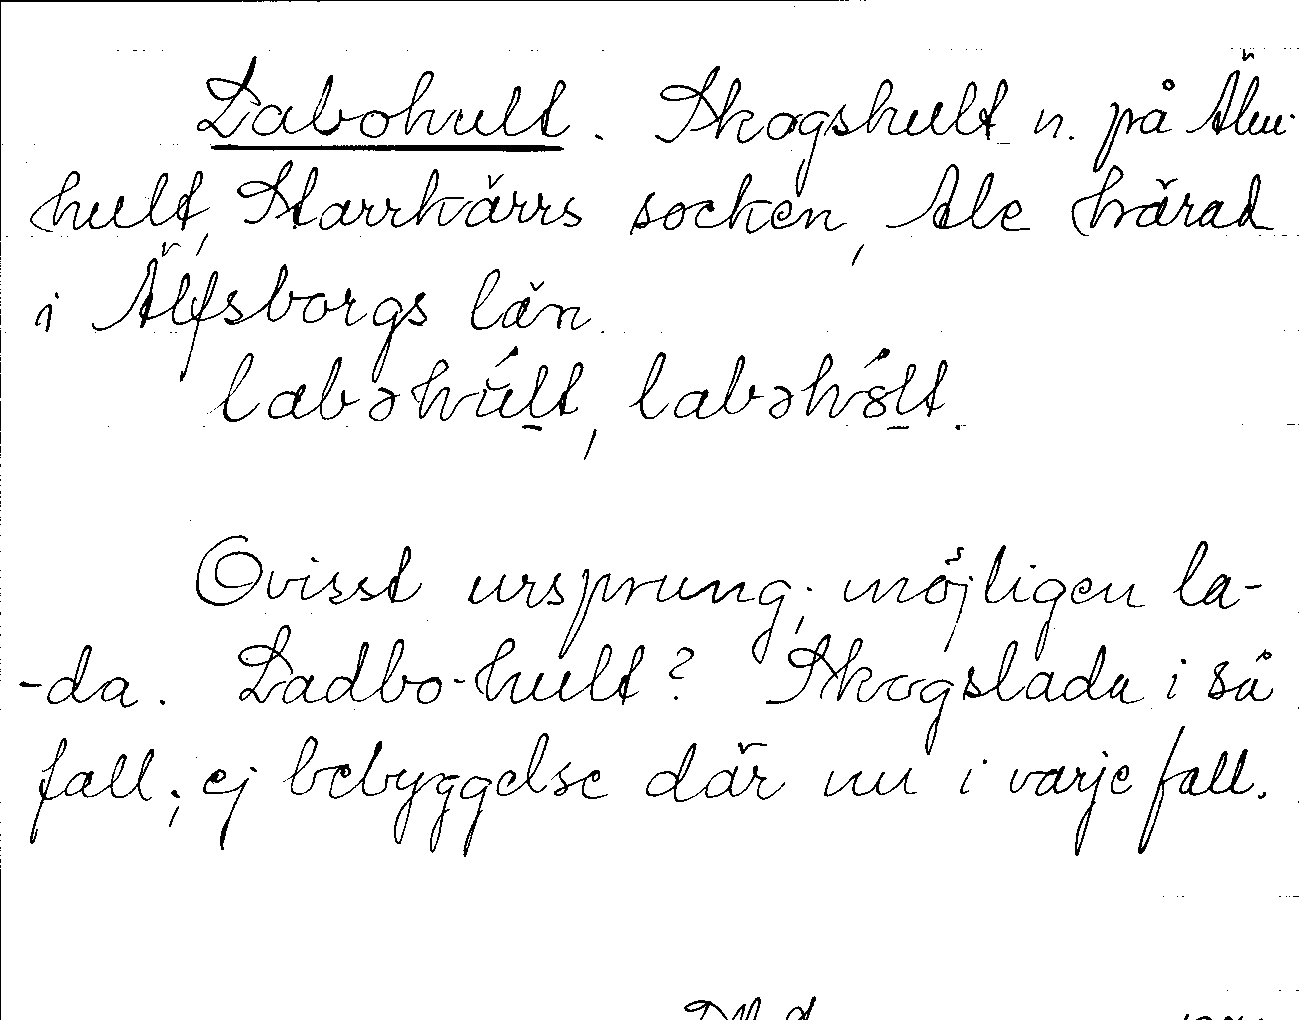 Labohult. Skogshult n. på Älm-
hult, Starrkärrs socken, Ale härad
i Älfsborgs län.
labəhúlt, labəhólt.
Ovisst ursprung; möjligen la-
-da. Ladbo-hult? Skogslada i så
fall; ej bebyggelse där nu i varje fall.